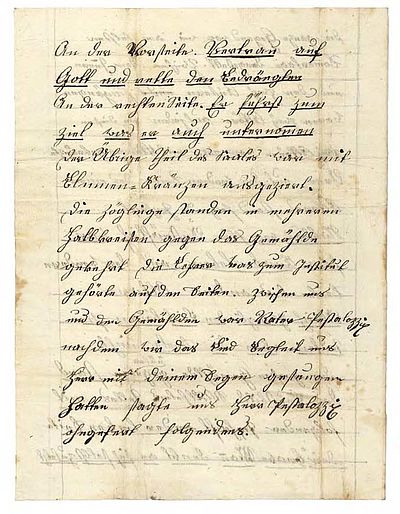 An der Vorseite. Vertrau auf
Gott und rette den Bedrängten
An der rechten Seite. Er führt zum
Ziel was er auch unternomen
Der Übige Theil des Saales war mit
Blumen=Kränzen ausgeziert.
Die Zöglinge standen in mehreren
Halbkreisen gegen das Gemählde
gekehrt die Lehrer was zum Institut
gehörte auf den Seiten. Zwichen uns
und den Gemählden war Vater Pestalozzi
nachdem wir das Lied Begleit uns
Herr mit deinem Segen gesungen
hatten sagte uns Herr Pestalozzi
ohngefert folgendens.